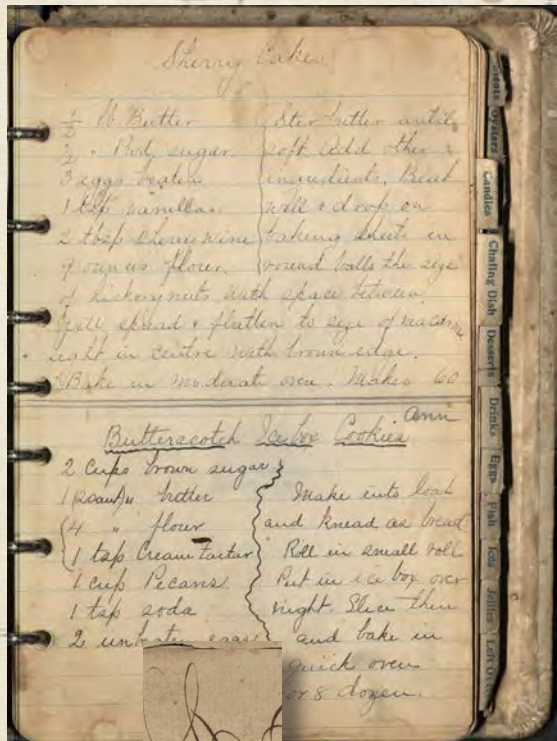 Sherry Cakes
1/2 lb Butter
1/2 " Pwd. sugar
3 eggs beaten
1 tsp vanilla
2 tbsp Sherry wine
9 ounces flour.
Ster butter until
soft add other
ingredients. Beat
well & drop on
baking sheets in
round balls the size
of hickorynuts with space between.
Will spread & flatten to size of macaroons
light in centre with brown edge.
Bake in moderate oven. Makes 60
Butterscotch Icebox Cookies
Ann
2 cups brown sugar
1 " butter
4 " flour
1 tsp Cream Tartar
1 cup Pecans
1 tsp soda
2 unbeaten eggs
Make into loaf
and knead as bread
Roll in small roll
Put in ice box over
night. Slice thin
and bake in
quick oven
or 8 dozen.
Oysters
Candies
Chafing Dish
Desserts
Drinks
Eggs
Fish
Ices
Jellies
Left Overs